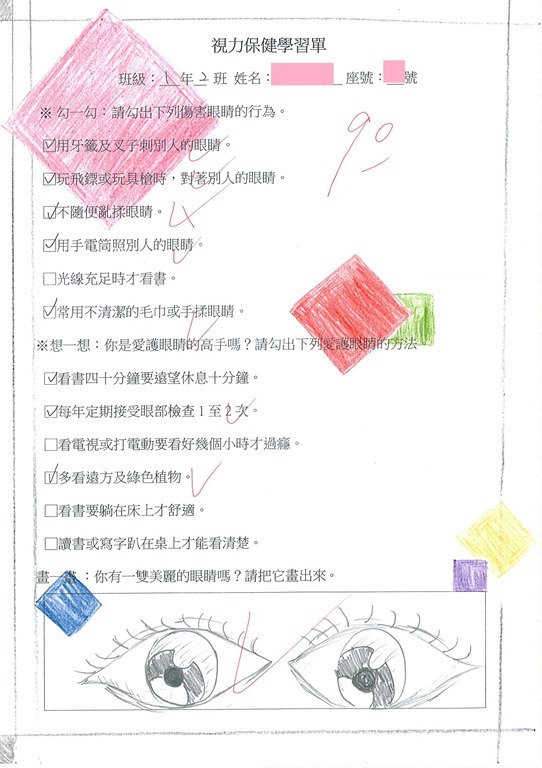 視力保健學習單
班級：1年2班 姓名： 座號： 號
※ 勾一勾：請勾出下列傷害眼睛的行為。
90
☑用牙籤及叉子刺別人的眼睛。
☑玩飛鏢或玩具槍時，對著別人的眼睛。
☑不隨便亂揉眼睛。
☑用手電筒照別人的眼睛。
☐光線充足時才看書。
☑常用不清潔的毛巾或手揉眼睛。
※想一想：你是愛護眼睛的高手嗎？請勾出下列愛護眼睛的方法
☑看書四十分鐘要遠望休息十分鐘。
☑每年定期接受眼部檢查1至2次。
☐看電視或打電動要看好幾個小時才過癮。
☑多看遠方及綠色植物。
☐看書要躺在床上才舒適。
☐讀書或寫字趴在桌上才能看清楚。
畫一畫：你有一雙美麗的眼睛嗎？請把它畫出來。